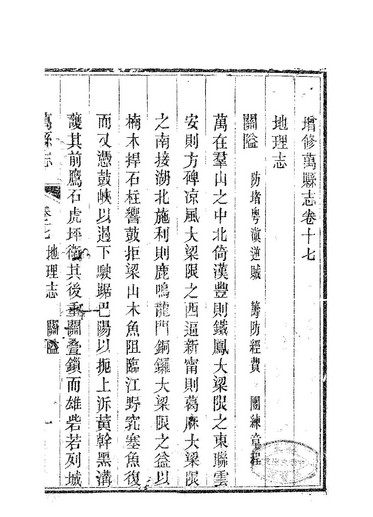 增修萬縣志卷十七
地理志
關隘 防堵粵滇逆賊 籌防經費 團練章程
萬在羣山之中北倚漢豐則鐵鳳大梁限之東聯雲
安則方碑凉風大梁限之西逼新甯則葛麻大梁限
之南接湖北施利則鹿鳴龍門銅鑼大梁限之益以
楠木捍石柱響鼓拒梁山木魚阻臨江野究塞魚復
而又憑鼓峽以過下駛踞巴陽以扼上泝黄幹黑溝
護其前鷹石虎坪衛其後重關叠鎖而雄砦若列城
萬縣志 卷十七 地理志 關隘